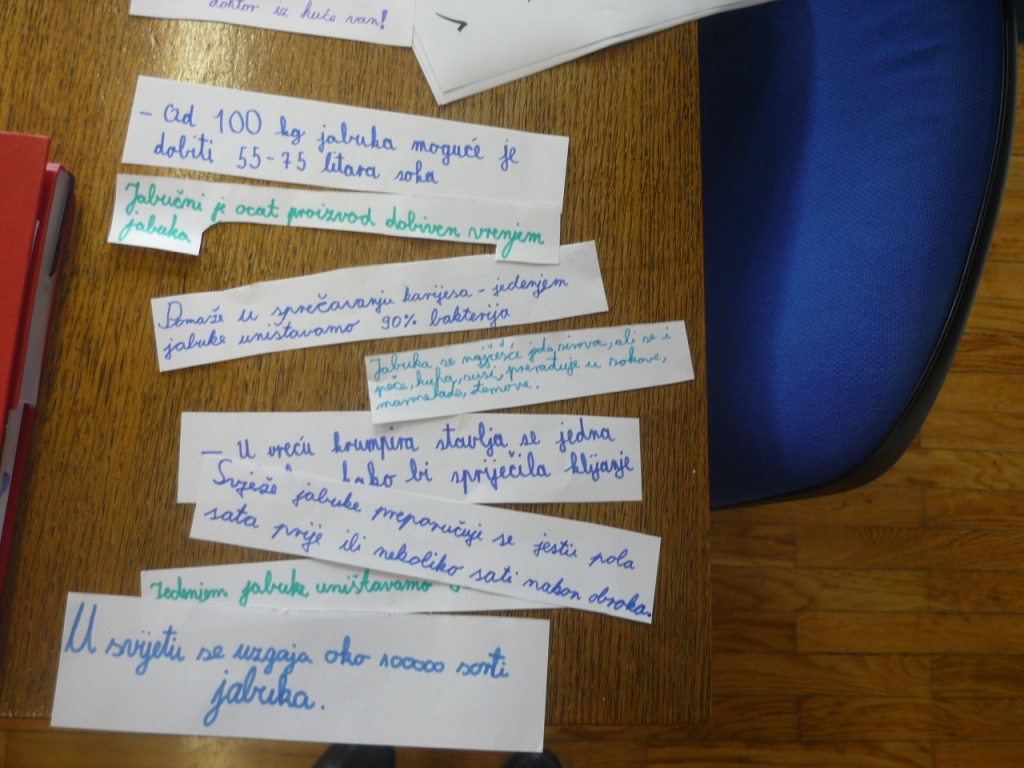 doktor iz kuće van!
- Od 100 kg jabuka moguće je
dobiti 55-75 litara soka
Jabučni je ocat proizvod dobiven vrenjem
jabuka
Pomaže u sprečavanju karijesa - jedenjem
jabuke uništavamo 90% bakterija
Jabuka se najčešće jede sirova, ali se i
peče, kuha, suši, prerađuje u sokove,
marmelade, džemove.
- U vreću krumpira stavlja se jedna
kako bi spriječila klijanje
Svježe jabuke preporučuje se jesti pola
sata prije ili nekoliko sati nakon obroka.
Jedenjem jabuke uništavamo
U svijetu se uzgaja oko 10000 sorti
jabuka.